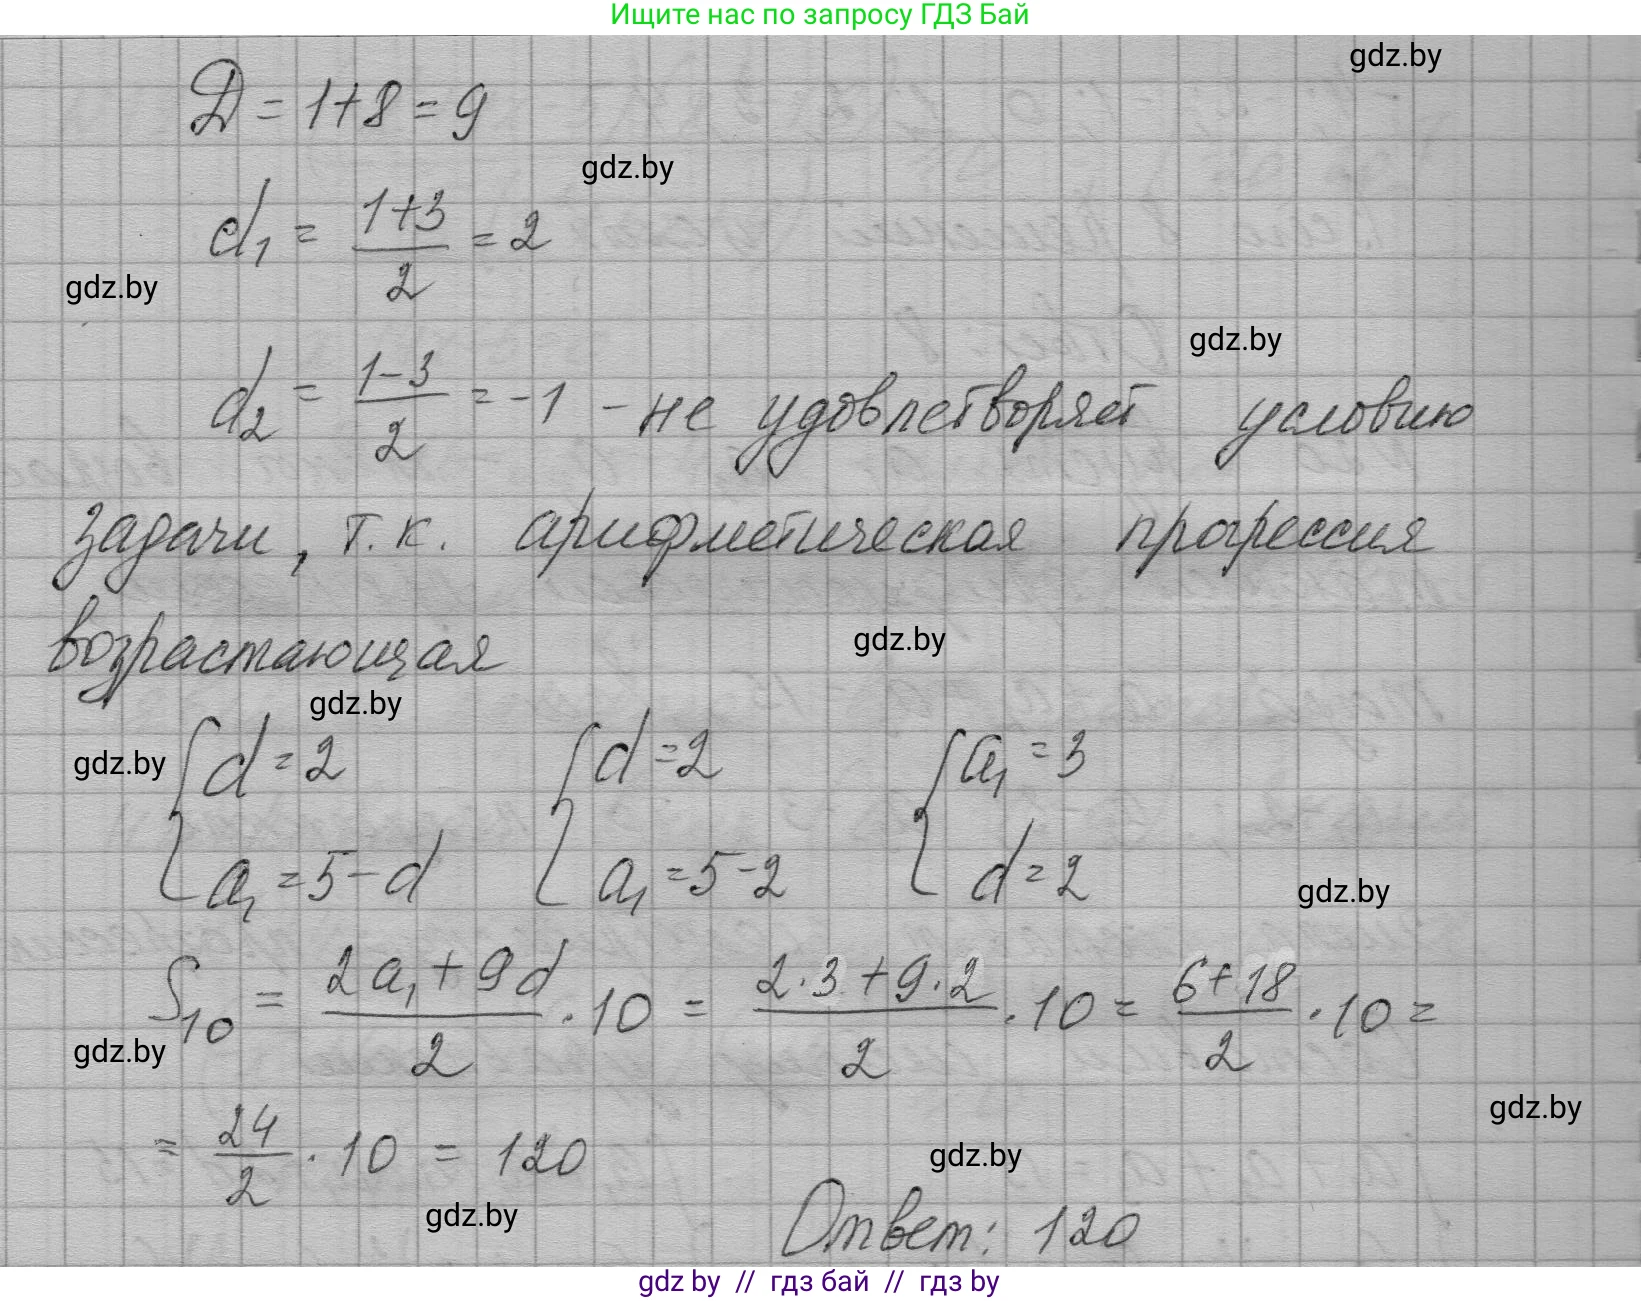 Ищите нас по запросу ГДЗ Бай
gdz.by
D = 1+8 = 9
gdz.by
d₁ = (1+3)/2 = 2
gdz.by
gdz.by
d₂ = (1-3)/2 = -1 - не удовлетворяет условию
задачи, т.к. арифметическая прогрессия
возрастающая
gdz.by
gdz.by
gdz.by
{ d = 2 { d = 2 { a₁ = 3
a₁ = 5 - d a₁ = 5 - 2 d = 2
gdz.by
S₁₀ = (2a₁ + 9d)/2 · 10 = (2·3 + 9·2)/2 · 10 = (6+18)/2 · 10 =
gdz.by
gdz.by
= 24/2 · 10 = 120
gdz.by
gdz.by
Ответ: 120
gdz by // гдз бай // гдз by